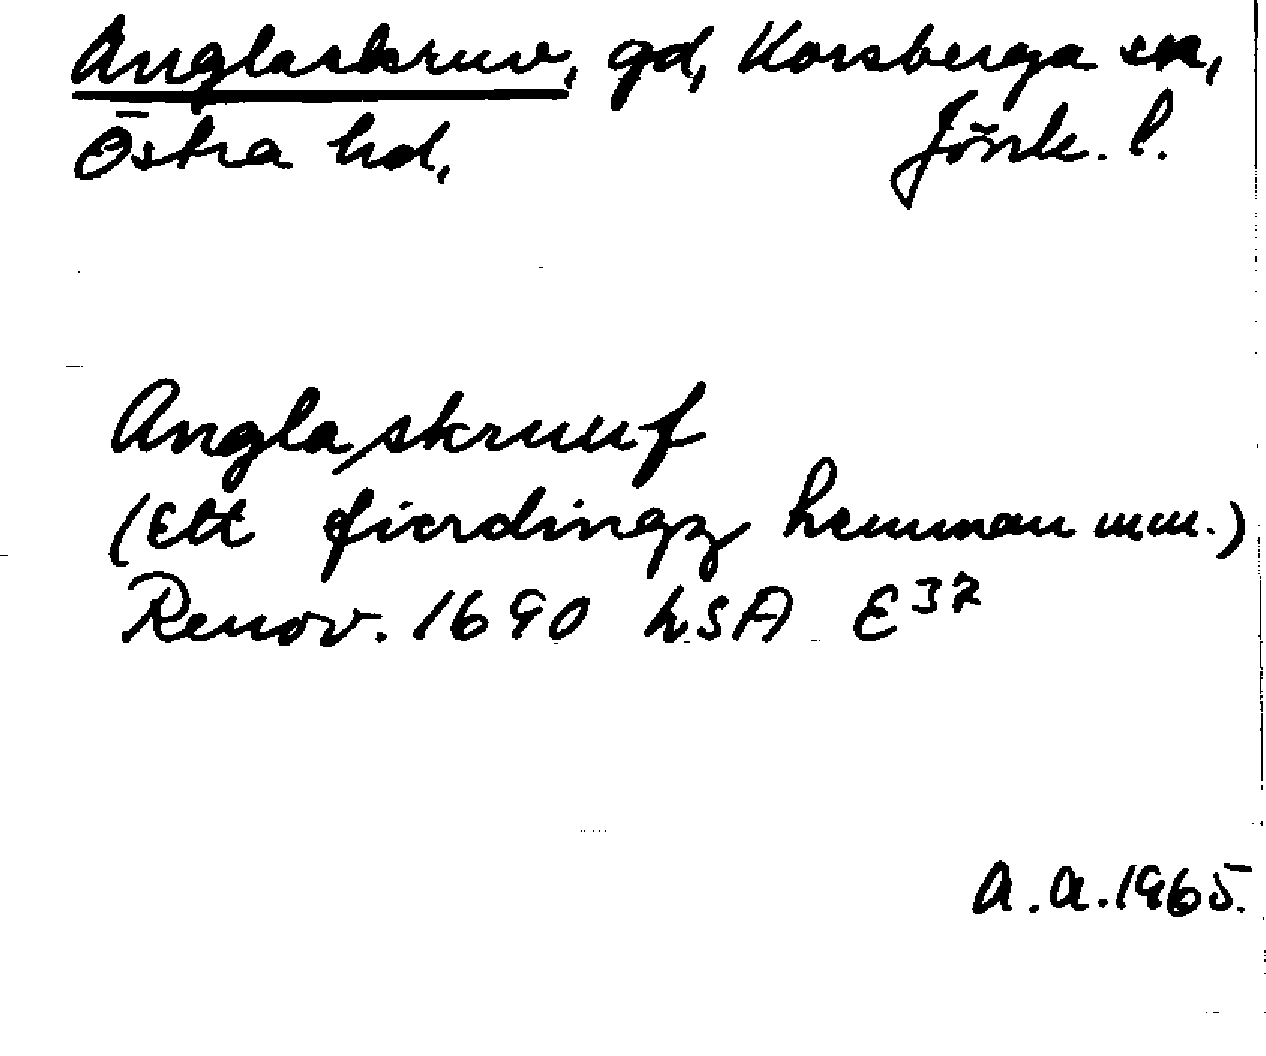 Anglaskruv, gd, Korsberga sn,
Östra hd, Jönk. l.
Angla,skruuf
(Ett fierdingz hemman mm.)
Renov. 1690 LSA E37
A.A.1965.